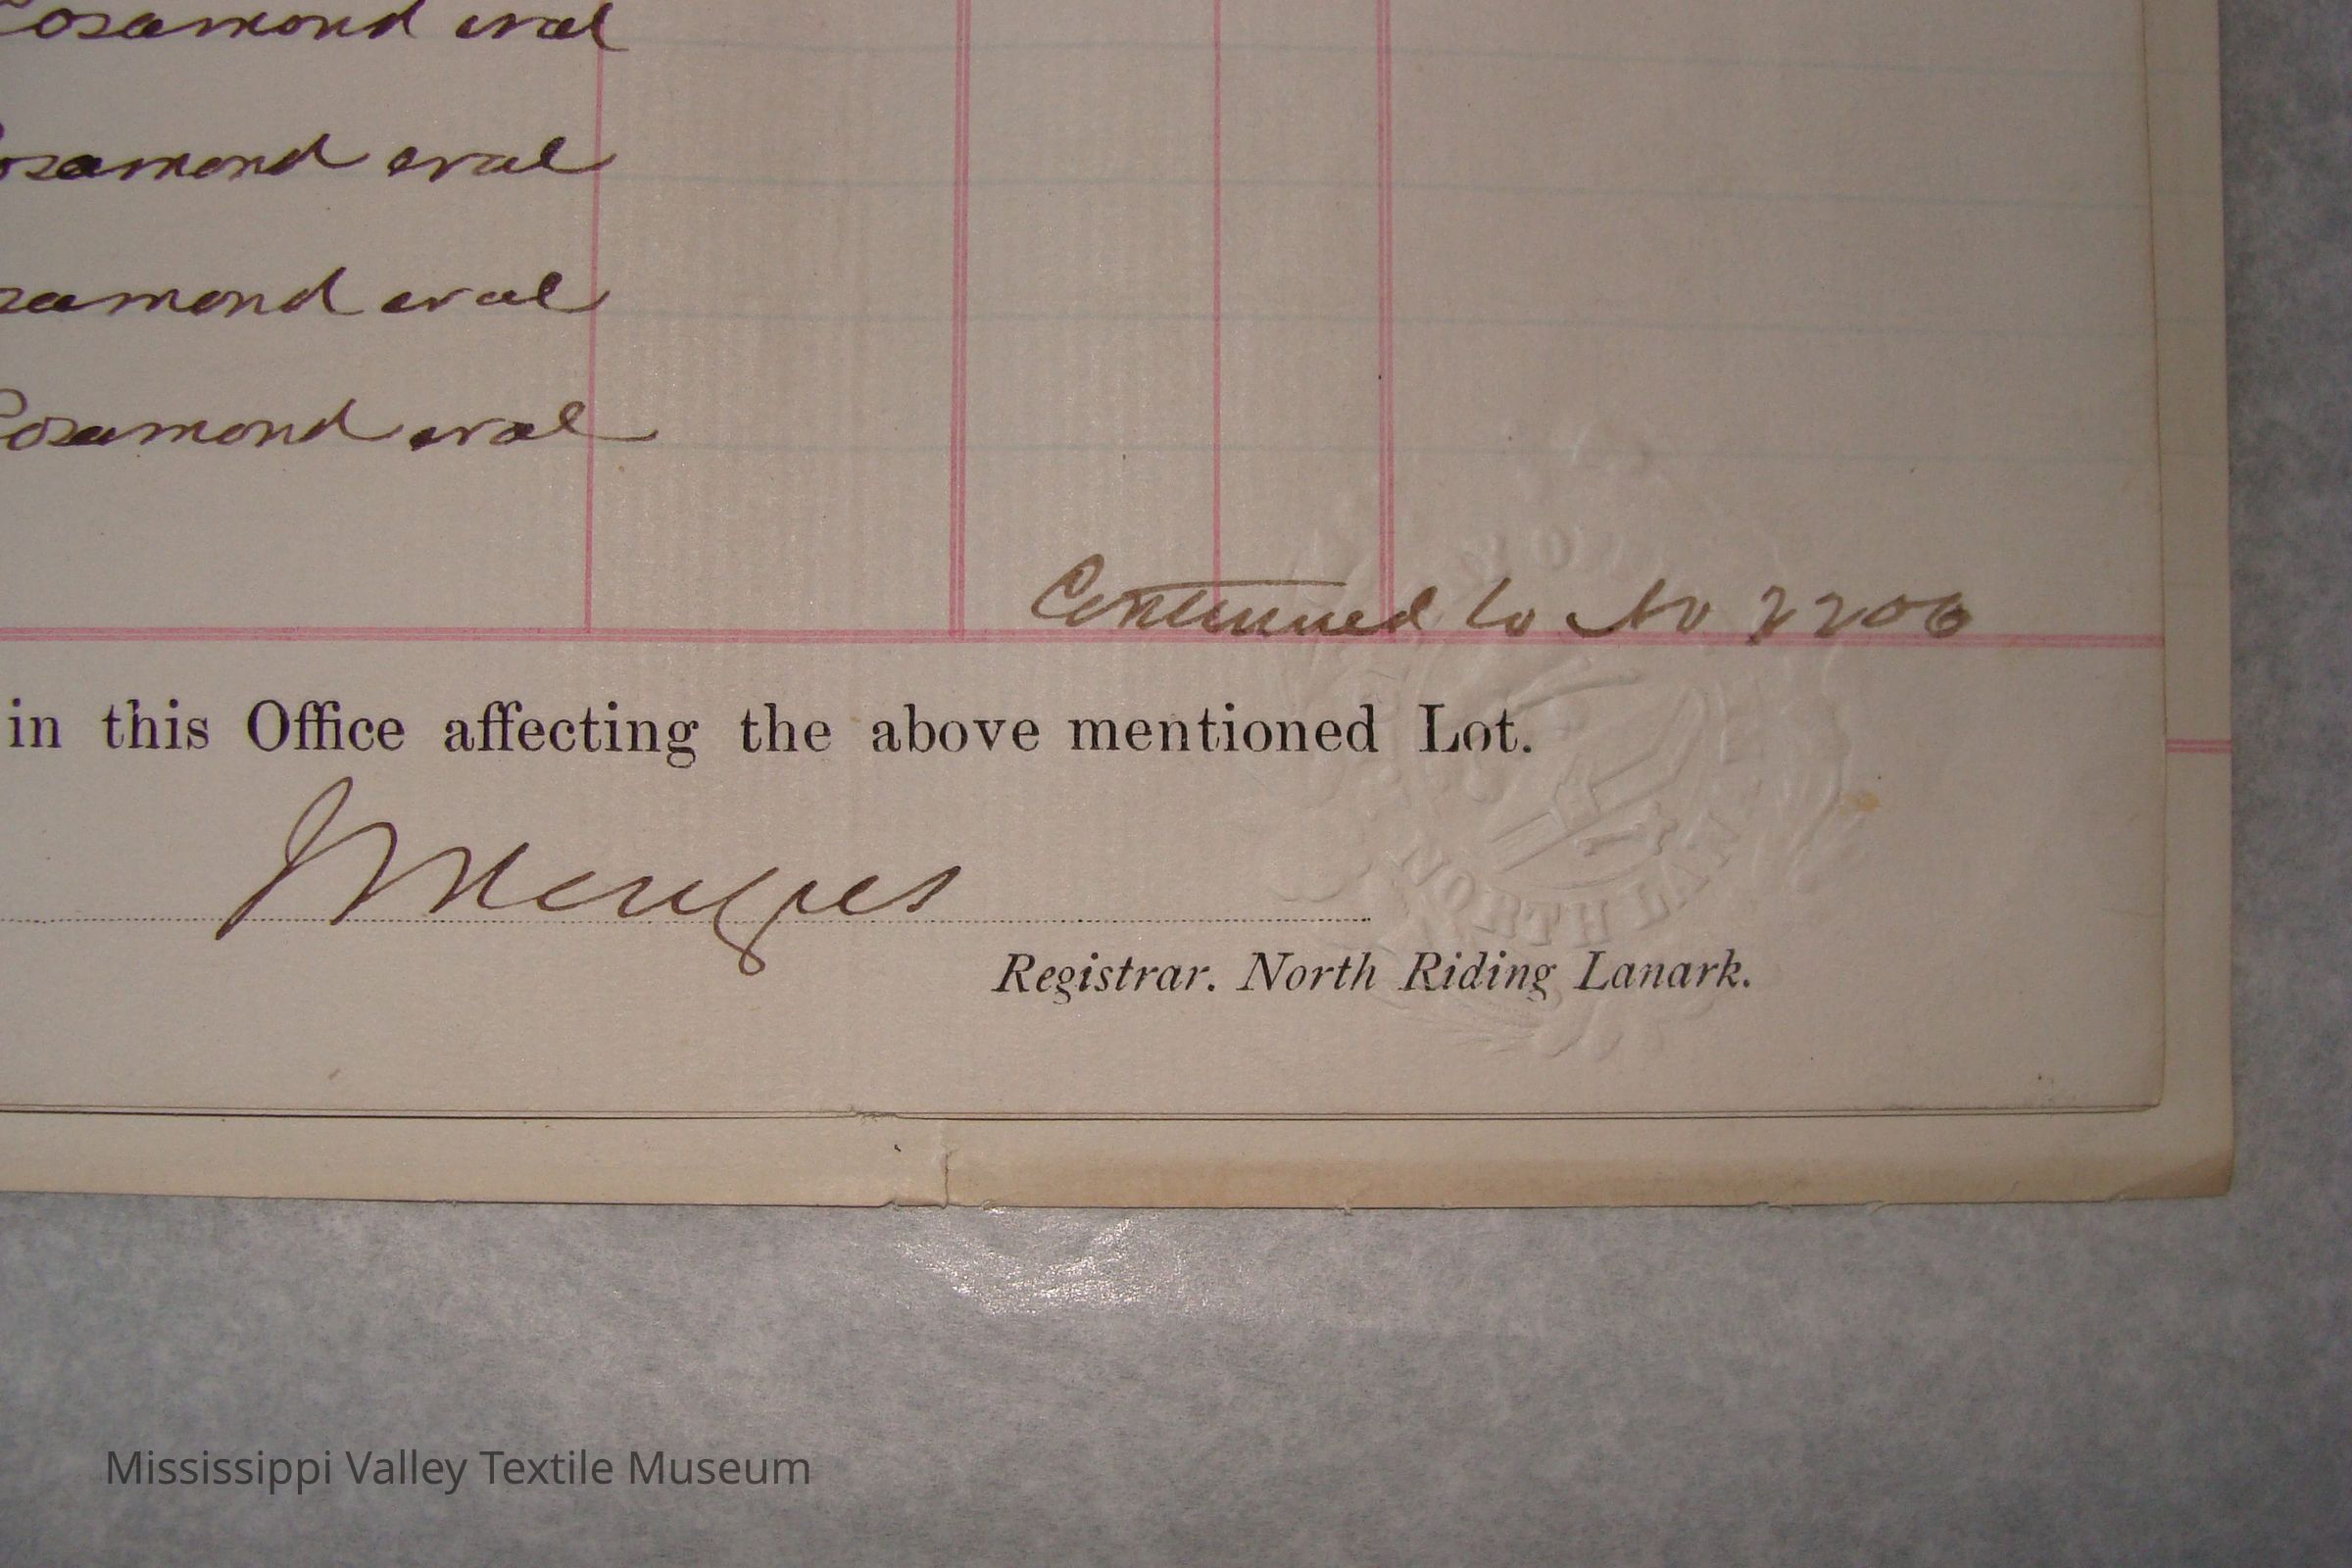 Rosamond eval
osamond eval
samond eval
Rosamond eval
Continued to No 2206
in this Office affecting the above mentioned Lot.
Registrar. North Riding Lanark.
NORTH LAN
Mississippi Valley Textile Museum